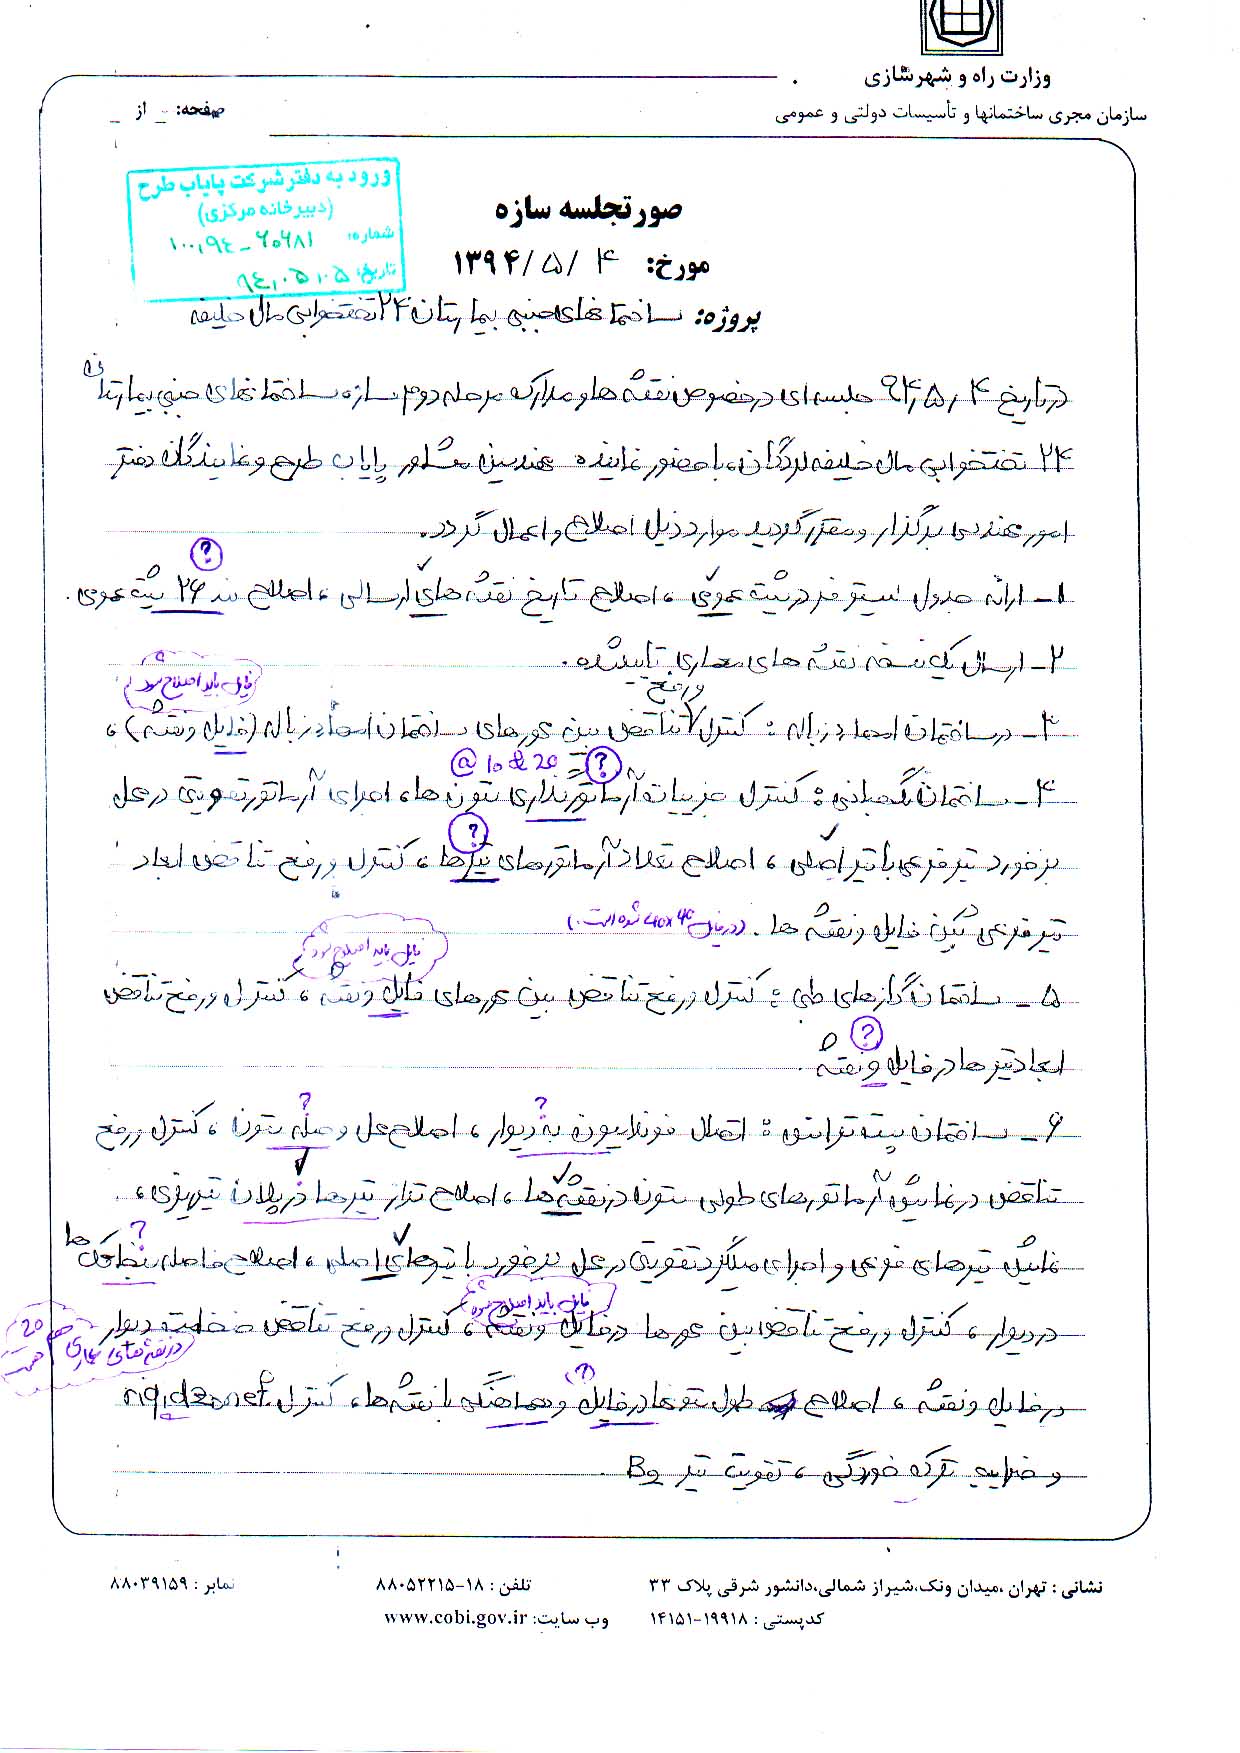 وزارت راه و شهرسازی
سازمان مجری ساختمانها و تأسیسات دولتی و عمومی
صفحه: - از -
ورود به دفتر شرکت پایاب طرح
(دبیرخانه مرکزی)
شماره:
تاریخ: ۹۴,۰۵,۰۵
صورتجلسه سازه
مورخ: ۱۳۹۴/۵/۴
پروژه: ساختمانهای جنبی بیمارستان ۲۴ تختخوابی مال خلیفه
در تاریخ ۹۴,۵,۴ جلسه‌ای در خصوص نقشه ها و مدارک مرحله دوم سازه ساختمانهای جنبی بیمارستان
۲۴ تختخوابی مال خلیفه لردگان، با حضور نماینده مهندسین مشاور پایاب طرح و نمایندگان دفتر
امور مهندسی برگزار و مقرر گردید موارد ذیل اصلاح و اعمال گردد.
?
۱- ارائه جدول لیستوفر در شیت عمومی ، اصلاح تاریخ نقشه های ارسالی ، اصلاح بند ۲۶ شیت عمومی.
۲- ارسال یک نسخه نقشه های معماری تایید شده.
فایل باید اصلاح شود
۳- در ساختمان امحاء زباله : کنترل و رفع تناقض بین محورهای ساختمان امحاء زباله (فایل و نقشه) ،
@ 10 & 20 ?
۴- ساختمان نگهبانی : کنترل جزییات آرماتورگذاری ستون ها، اجرای آرماتور تقویتی در محل
?
برخورد تیر فرعی با تیر اصلی ، اصلاح تعداد آرماتورهای تیرها ، کنترل و رفع تناقض ابعاد
تیر فرعی بین فایل و نقشه ها . (در فایل 40x40 شده است.)
فایل باید اصلاح شود
۵- ساختمان گازهای طبی : کنترل و رفع تناقض بین محورهای فایل و نقشه ، کنترل و رفع تناقض
?
ابعاد تیرها در فایل و نقشه .
? ?
۶- ساختمان پست ترانس : اتصال فونداسیون به دیوار ، اصلاح محل وصله ستون ، کنترل و رفع
تناقض در نمایش آرماتورهای طولی ستون در نقشه ها ، اصلاح تراز تیرها در پلان تیرریزی ،
?
نمایش تیرهای فرعی و اجرای میلگرد تقویتی در محل برخورد با تیرهای اصلی ، اصلاح فاصله سنجاقک ها
فایل باید اصلاح شود
در دیوار ، کنترل و رفع تناقض بین محورها در فایل و نقشه ، کنترل و رفع تناقض ضخامت دیوار
در نقشه‌های معماری هم 20
(?)
در فایل و نقشه ، اصلاح طول ستونها در فایل و هماهنگی با نقشه ها، کنترل rigid zone
و ضرایب ترک خوردگی ، تقویت تیر B9 .
نشانی : تهران ،میدان ونک،شیراز شمالی،دانشور شرقی پلاک ۳۳
تلفن : ۱۸-۸۸۰۵۲۲۱۵
نمابر : ۸۸۰۳۹۱۵۹
کدپستی : ۱۹۹۱۸-۱۴۱۵۱
وب سایت: www.cobi.gov.ir